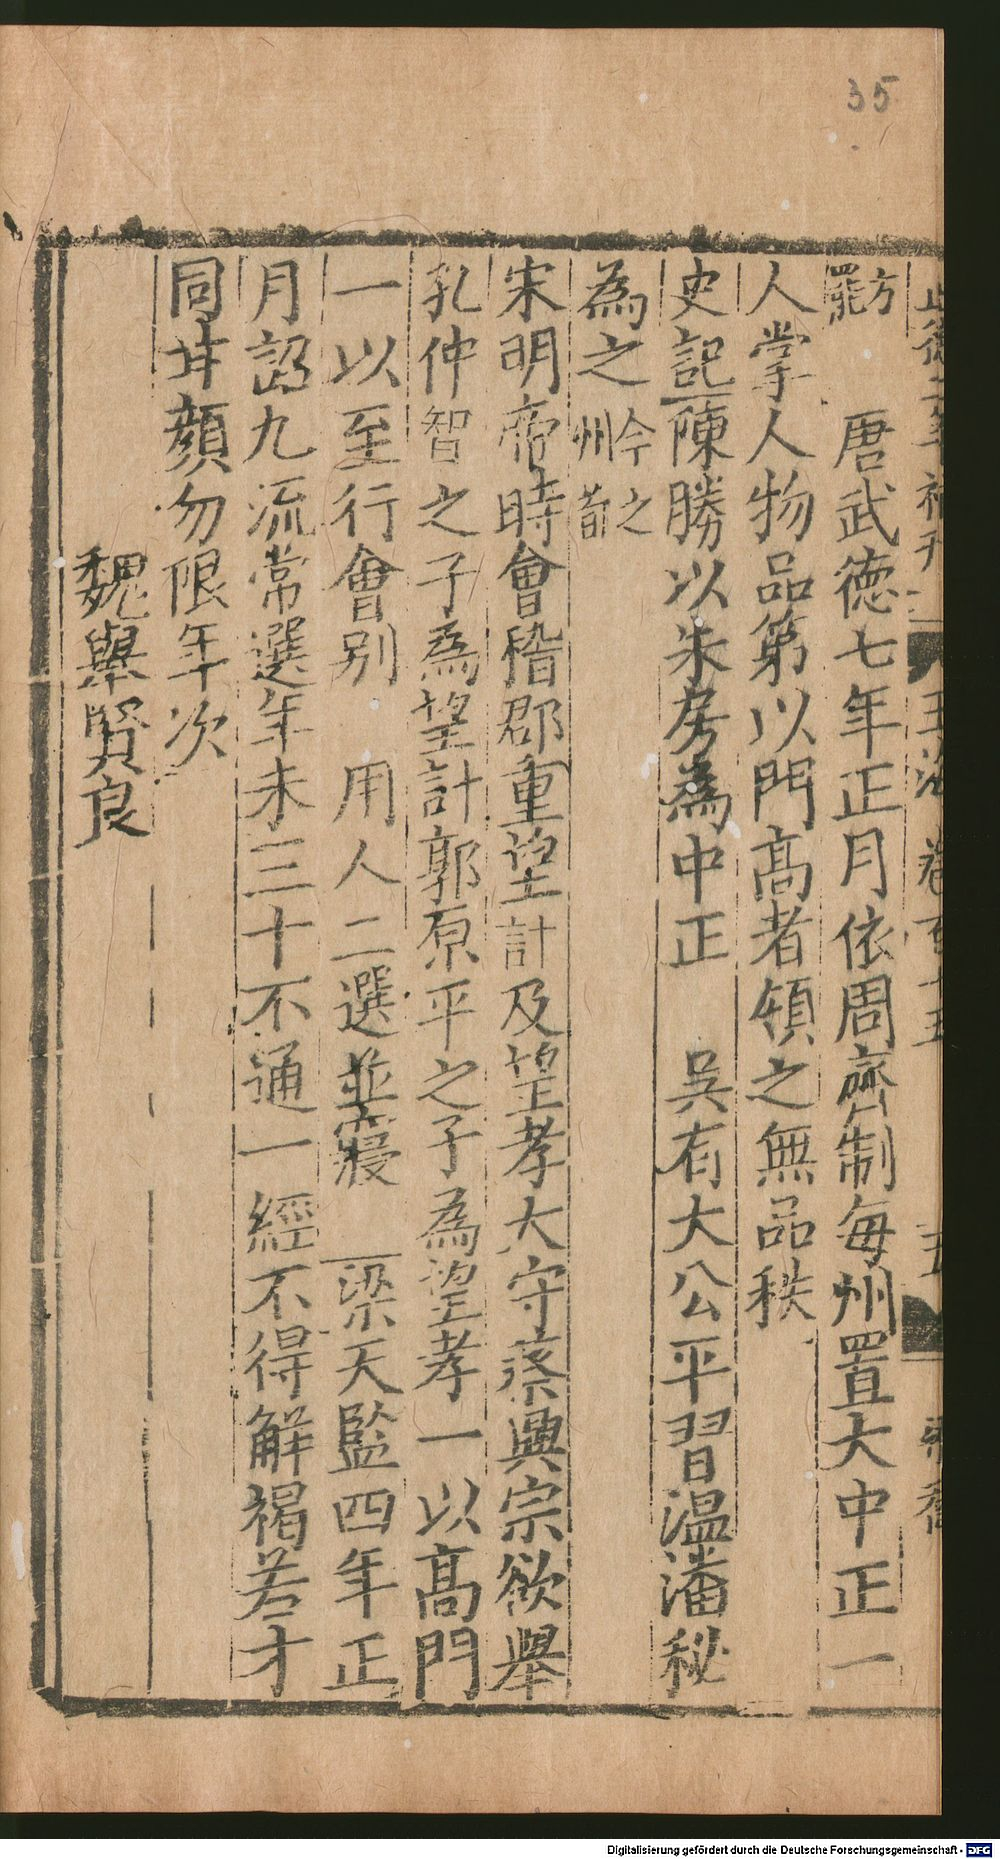 35
正德二年補刊 玉海 卷百十五 五
方罷 唐武德七年正月依周齊制每州置大中正一
人掌人物品第以門高者領之無品秩
史記陳勝以朱房為中正 吳有大公平習温潘秘
為之今之州都
宋明帝時會稽郡重望計及望孝大守蔡興宗欲舉
孔仲智之子為望計郭原平之子為望孝一以高門
一以至行會别 用人二選並寢 梁天監四年正
月詔九流常選年未三十不通一經不得解褐若才
同甘顔勿限年次
魏舉賢良
Digitalisierung gefördert durch die Deutsche Forschungsgemeinschaft - DFG